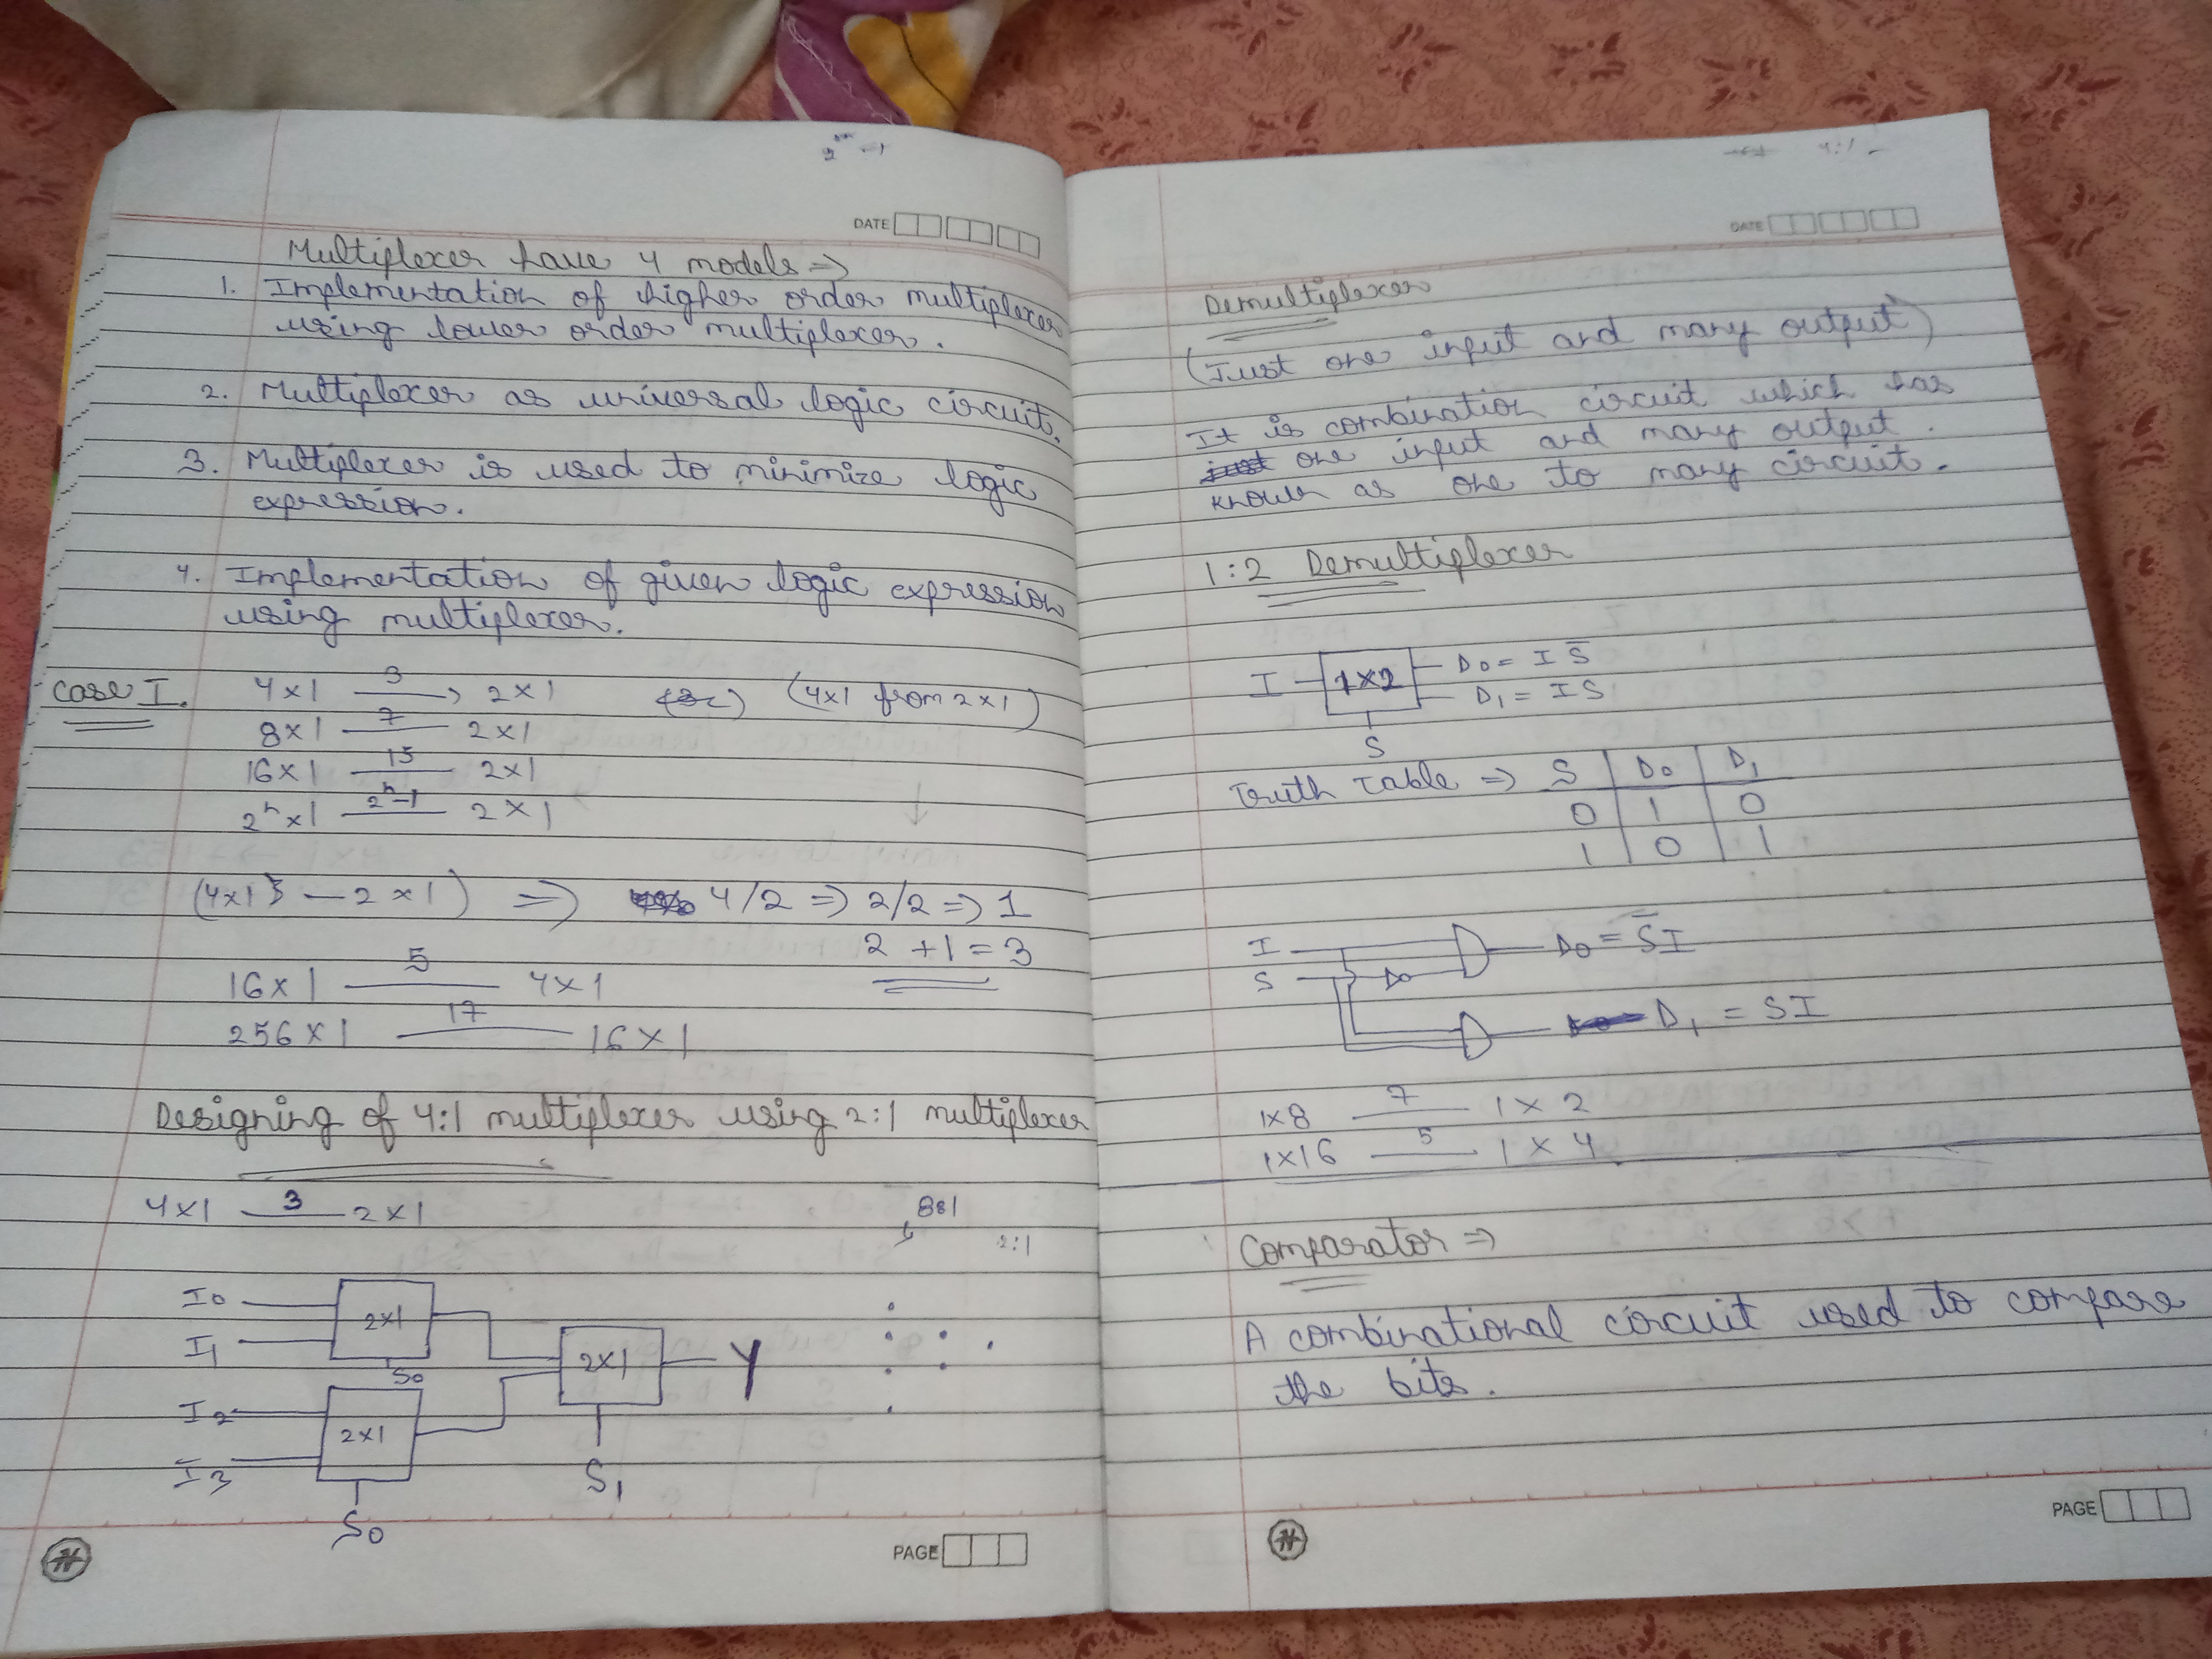 2ⁿ-1
DATE
Multiplexer have 4 models ⇒
1. Implementation of higher order multiplexer
using lower order multiplexer.
2. Multiplexer as universal logic circuit.
3. Multiplexer is used to minimize logic
expression.
4. Implementation of given logic expression
using multiplexer.
Case I. 4×1 —3→ 2×1 (4×1 from 2×1)
8×1 —7— 2×1
16×1 —15— 2×1
2ⁿ×1 —2ⁿ-1— 2×1
(4×1 — 2×1) ⇒ 4/2 ⇒ 2/2 ⇒ 1
2 + 1 = 3
16×1 —5— 4×1
256×1 —17— 16×1
Designing of 4:1 multiplexer using 2:1 multiplexer
4×1 —3— 2×1
8:1
2:1
I0
2×1
I1
S0
2×1
Y
I2
2×1
I3
S1
S0
PAGE
4:1
DATE
Demultiplexer
(Just one input and many output)
It is combination circuit which has
one input and many output.
known as one to many circuit.
1:2 Demultiplexer
I 1×2 D0 = I S̅
D1 = I S
S
Truth Table ⇒ S D0 D1
0 1 0
1 0 1
I D0 = S̅I
S
D1 = SI
1×8 —7— 1×2
1×16 —5— 1×4
Comparator ⇒
A combinational circuit used to compare
the bits.
PAGE